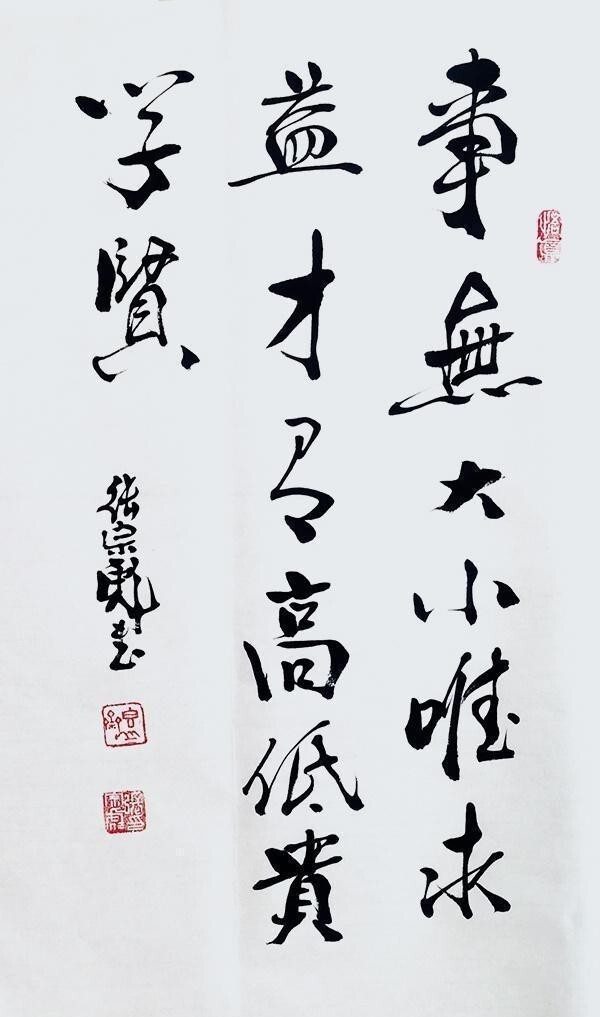 事無大小唯求
益才有高低貴
学賢
張宗彪書